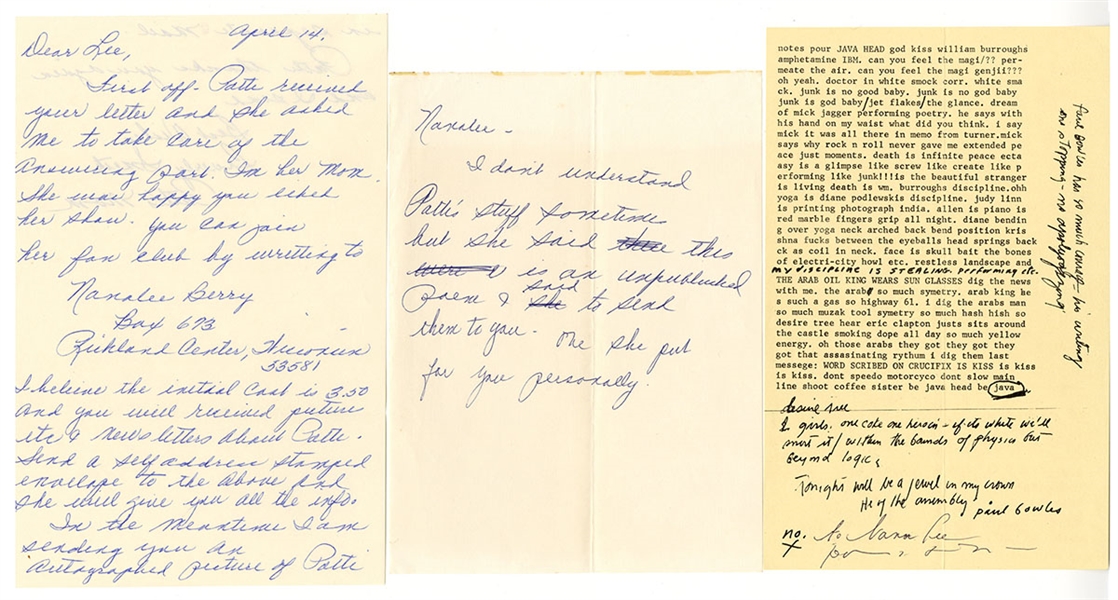 April 14.
Dear Lee,
First off - Patti received
your letter and she asked
me to take care of the
answering part. I'm her Mom.
She was happy you liked
her show. you can join
her fan club by writting to
Nanalee Berry
Box 673
Richland Center, Wisconsin
53581
I believe the initial cost is 3.50
and you will received picture
etc & newsletters about Patti.
Send a self address stamped
envelope to the above and
she will give you all the info.
In the meantime I am
sending you an
autographed picture of Patti
Nanalee -
I don't understand
Patti's stuff sometimes
but she said this
is an unpublished
poem & said to send
them to you. One she put
for you personally.
notes pour JAVA HEAD god kiss william burroughs
amphetamine IBM. can you feel the magi/?? per-
meate the air. can you feel the magi genjii???
oh yeah. doctor in white smock corr. white sma
ck. junk is no good baby. junk is no god baby
junk is god baby/jet flakes/the glance. dream
of mick jagger performing poetry. he says with
his hand on my waist what did you think. i say
mick it was all there in memo from turner.mick
says why rock n roll never gave me extended pe
ace just moments. death is infinite peace ecta
asy is a glimpse like screw like create like p
erforming like junk!!!is the beautiful stranger
is living death is wm. burroughs discipline.ohh
yoga is diane podlewskis discipline. judy linn
is printing photograph india. allen is piano is
red marble fingers grip all night. diane bendin
g over yoga neck arched back bend position kris
shna fucks between the eyeballs head springs back
back as coil in neck. face is skull bait the bones
of electri-city howl etc. restless landscape and
my discipline is stealing performing etc.
THE ARAB OIL KING WEARS SUN GLASSES dig the news
with me. the arabs so much symetry. arab king he
s such a gas so highway 61. i dig the arabs man
so much muzak tool symetry so much hash hish so
desire tree hear eric clapton justs sits around
the castle smoking dope all day so much yellow
energy. oh those arabs they got they got they
got that assasinating rythum i dig them last
messege: WORD SCRIBED ON CRUCIFIX IS KISS is kiss
is kiss. dont speedo motorcyco dont slow main
line shoot coffee sister be java head be java
Paul Bowles has so much courage - his writing
non stopping - no apologizing
desire tree
2 girls. one coke one heroin - if its white we'll
snort it / within the bounds of physics but
beyond logic,
Tonight will be a jewel in my crown
He of the assembly paul bowles
no. to Nana Lee
x